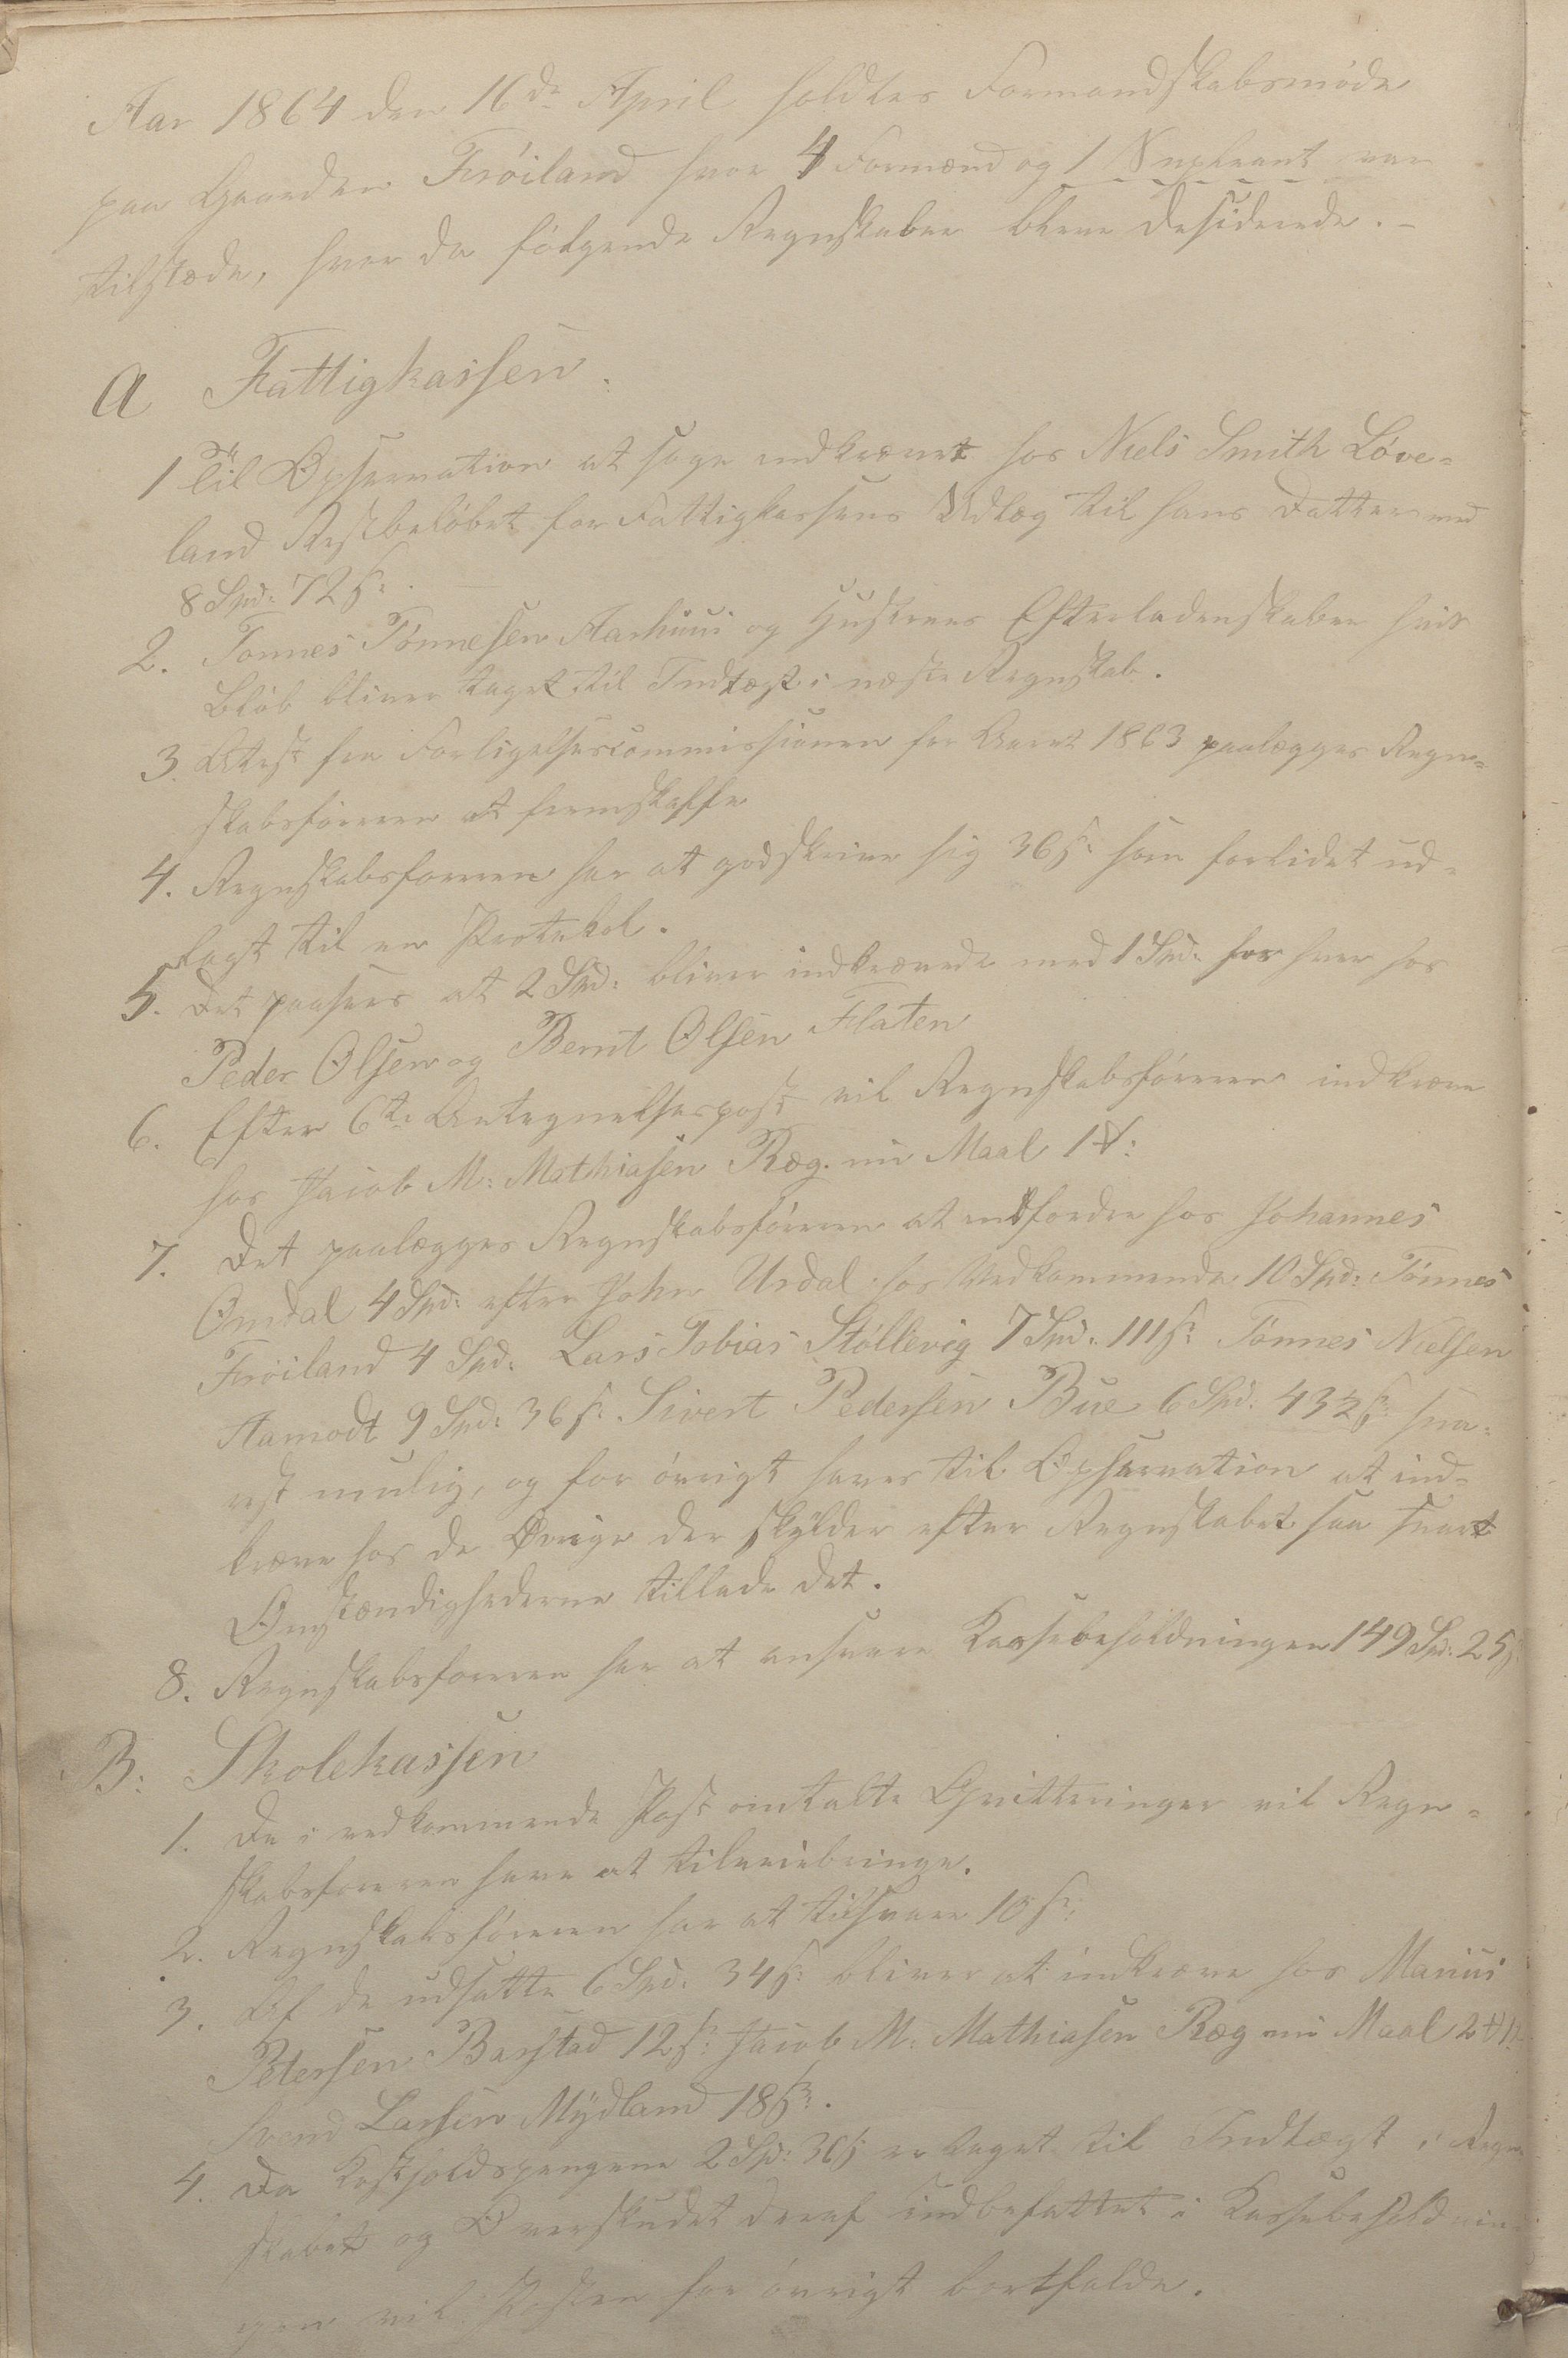 Aar 1864 den 16de April holdtes Formandskabsmøde
paa Gaarden Frøiland hvor 4 Formænd og 1 Supleant var
tilstede, hvor da følgende Regnskaber bleve desiderede. –
A Fattigkassen.
1 Til Opservation at søge indkrævet hos Niels Smith Løve-
land Restbeløbet for Fattigkassens Udlæg til hans Datter med
8 Spd: 72 s:
2. Tønnes Tønnesen Aarhuus og Hustrues Efterladenskaber hvis
Bløb bliver taget til Indtægt i næste Regnskab.
3. Attest fra Forligelsescommissionen for Aaret 1863 paalægges Regn-
skabsføreren at fremskaffe
4. Regnskabsføreren har at godskrive sig 36 s: som forlidet ud-
lagt til en Protokol.
5. Det paasees at 2 Spd: bliver indkrævede med 1 Spd: for hver hos
Peder Olsen og Bernt Olsen Flaten
6. Efter 6te Antegnelsespost vil Regnskabsføreren indkræve
hos Jacob M: Mathiasen Ræg. nu Maal
7. Det paalægges Regnskabsføreren at indfordre hos Johannes
Omdal 4 Spd: efter John Urdal hos Vedkommende 10 Spd: Tønnes
Frøiland 4 Spd: Lars Tobias Støllevig 7 Spd: 111 s: Tønnes Nielsen
Aamodt 9 Spd: 36 s: Sivert Pedersen Bue 6 Spd: 43½ s: sna-
rest mulig, og for øvrigt haves til Opservation at ind-
kræve hos de Øvrige der skylder efter Regnskabet saa snart
Omstændighederne tillade det.
8. Regnskabsføreren har at ansvare Kassebeholdningen 149 Spd: 25 s:
B: Skolekassen
1. De i vedkommende Post omtalte Qvitteringer vil Regn-
skabsføreren have at tilveiebringe.
2. Regnskabsføreren har at tilsvare 10 s:
3. Af de udsatte 6 Spd: 34 s: bliver at indkræve hos Marius
Petersen Barstad 12 s: Jacob M: Mathiasen Ræg nu Maal
Svend Larsen Mydland 18 s:.
4. Da Kostholdspengene 2 Spd: 36 s er taget til Indtægt i Regn
skabet og Overskudet deraf indbefattet i Kassebeholdnin-
gen vil Posten for øvrigt bortfalde.